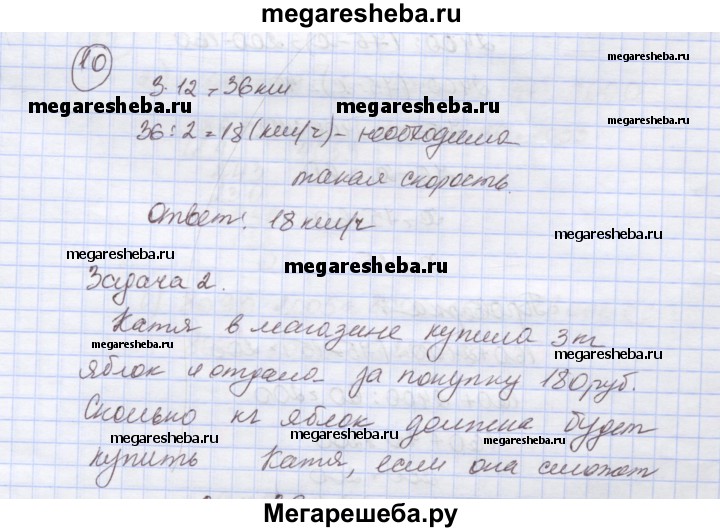 megaresheba.ru
10
3·12 = 36км
megaresheba.ru megaresheba.ru
36:2=18(км/ч)- необходима
такая скорость.
Ответ: 18км/ч
megaresheba.ru megaresheba.ru
megaresheba.ru
Задача 2.
Катя в магазине купила 3кг
megaresheba.ru megaresheba.ru
яблок и отдала за покупку 180руб.
Сколько кг яблок должна будет
megaresheba.ru megaresheba.ru megaresheba.ru
купить Катя, если она сможет
Мегарешеба.ру